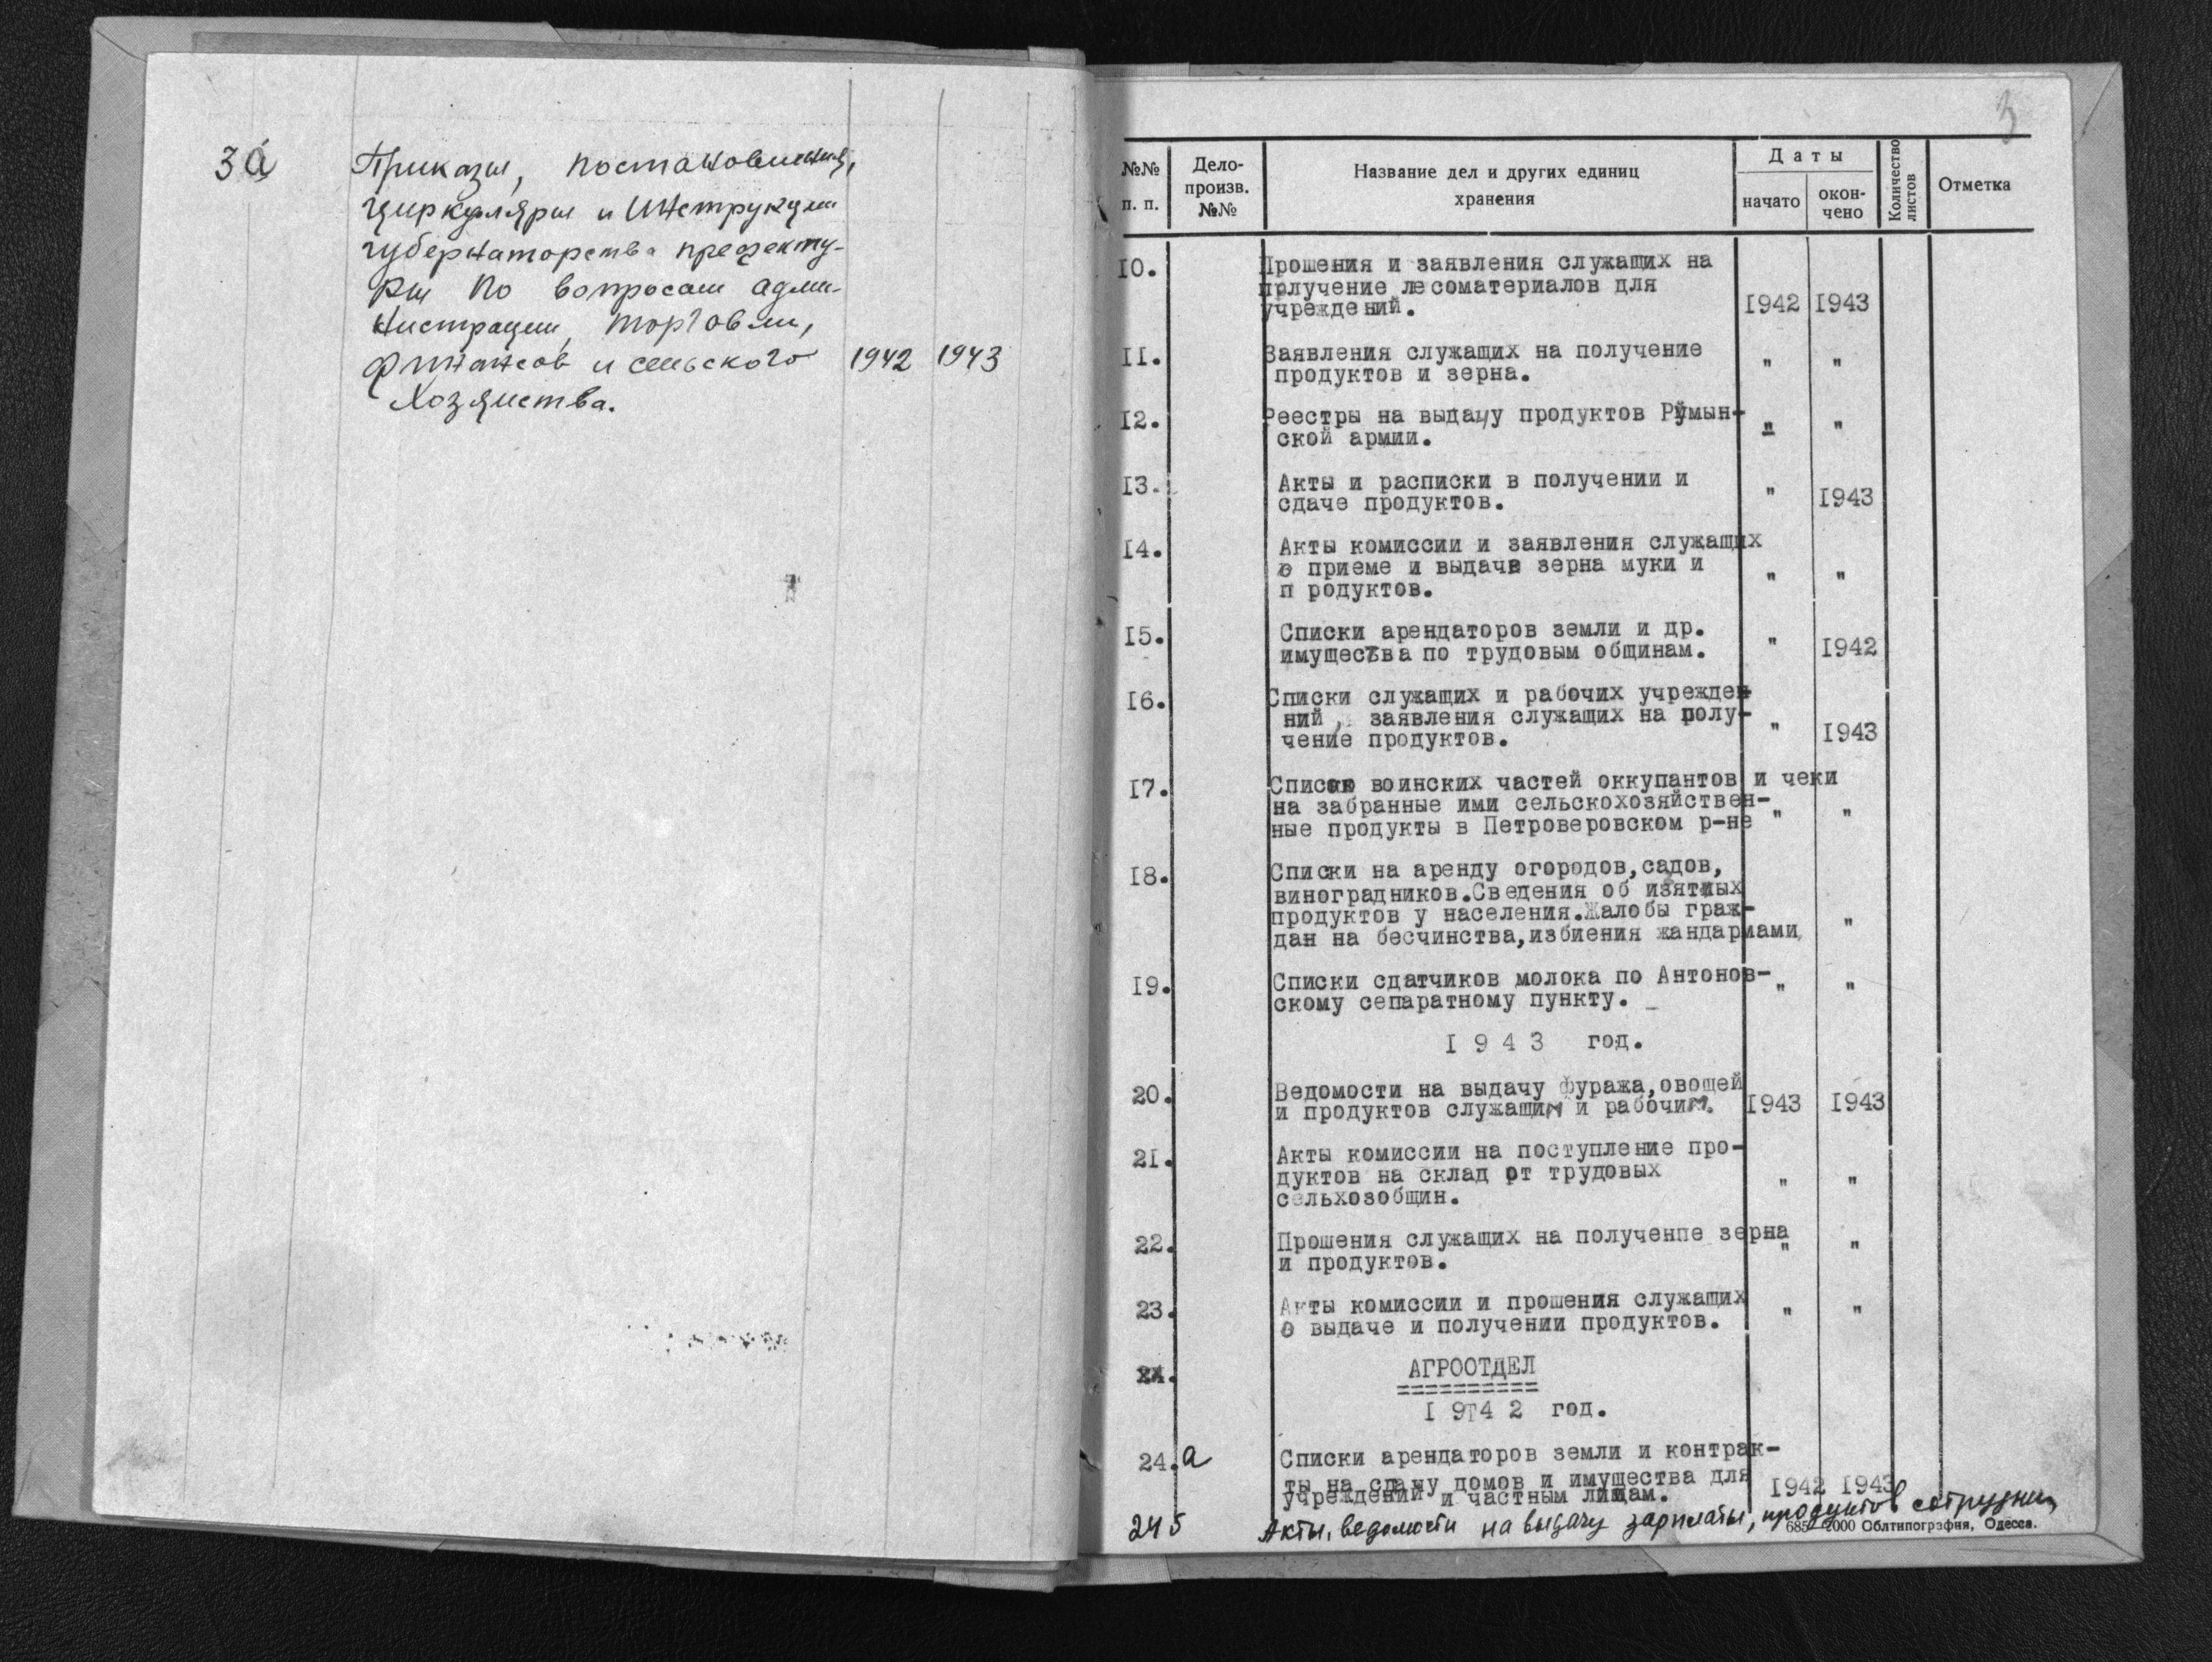 3а Приказы, постановления,
циркуляры и инструкции
губернаторства префекту-
ры по вопросам адми-
нистрации, торговли,
финансов и сельского 1942 1943
хозяиства.
3
№№ п. п. Дело-произв. №№ Название дел и других единиц хранения Даты начато окон-чено Количество листов Отметка
10. Прошения и заявления служащих на
прлучение лесоматериалов для
учреждений. 1942 1943
11. Заявления служащих на получение
продуктов и зерна. " "
12. Реестры на выдачу продуктов Румын-
ской армии. " "
13. Акты и расписки в получении и
сдаче продуктов. " 1943
14. Акты комиссии и заявления служащих
о приеме и выдаче зерна муки и
п родуктов. " "
15. Списки арендаторов земли и др.
имущества по трудовым общинам. " 1942
16. Списки служащих и рабочих учрежден-
ний, заявления служащих на полу-
чение продуктов. " 1943
17. Списки воинских частей оккупантов и чеки
на забранные ими сельскохозяйствен-
ные продукты в Петроверовском р-не " "
18. Списки на аренду огородов,садов,
виноградников.Сведения об изятных
продуктов у населения.Жалобы граж-
дан на бесчинства,избиения жандармами, "
19. Списки сдатчиков молока по Антонов-
скому сепаратному пункту. " "
1 9 4 3 год.
20. Ведомости на выдачу фуража,овощей
и продуктов служащим и рабочим. 1943 1943
21. Акты комиссии на поступление про-
дуктов на склад от трудовых
сельхозобщин. " "
22. Прошения служащих на полученпе зерна
и продуктов. " "
23. Акты комиссии и прошения служащих
о выдаче и получении продуктов. " "
24. АГРООТДЕЛ
==========
1 9 4 2 год.
24.а Списки арендаторов земли и контрак-
ты на сдачу домов и имущества для
учреждений и частным лицам. 1942 1943
24б Акты, ведомости на выдачу зарплаты, продуктов сотрудник
685—2000 Облтипография, Одесса.